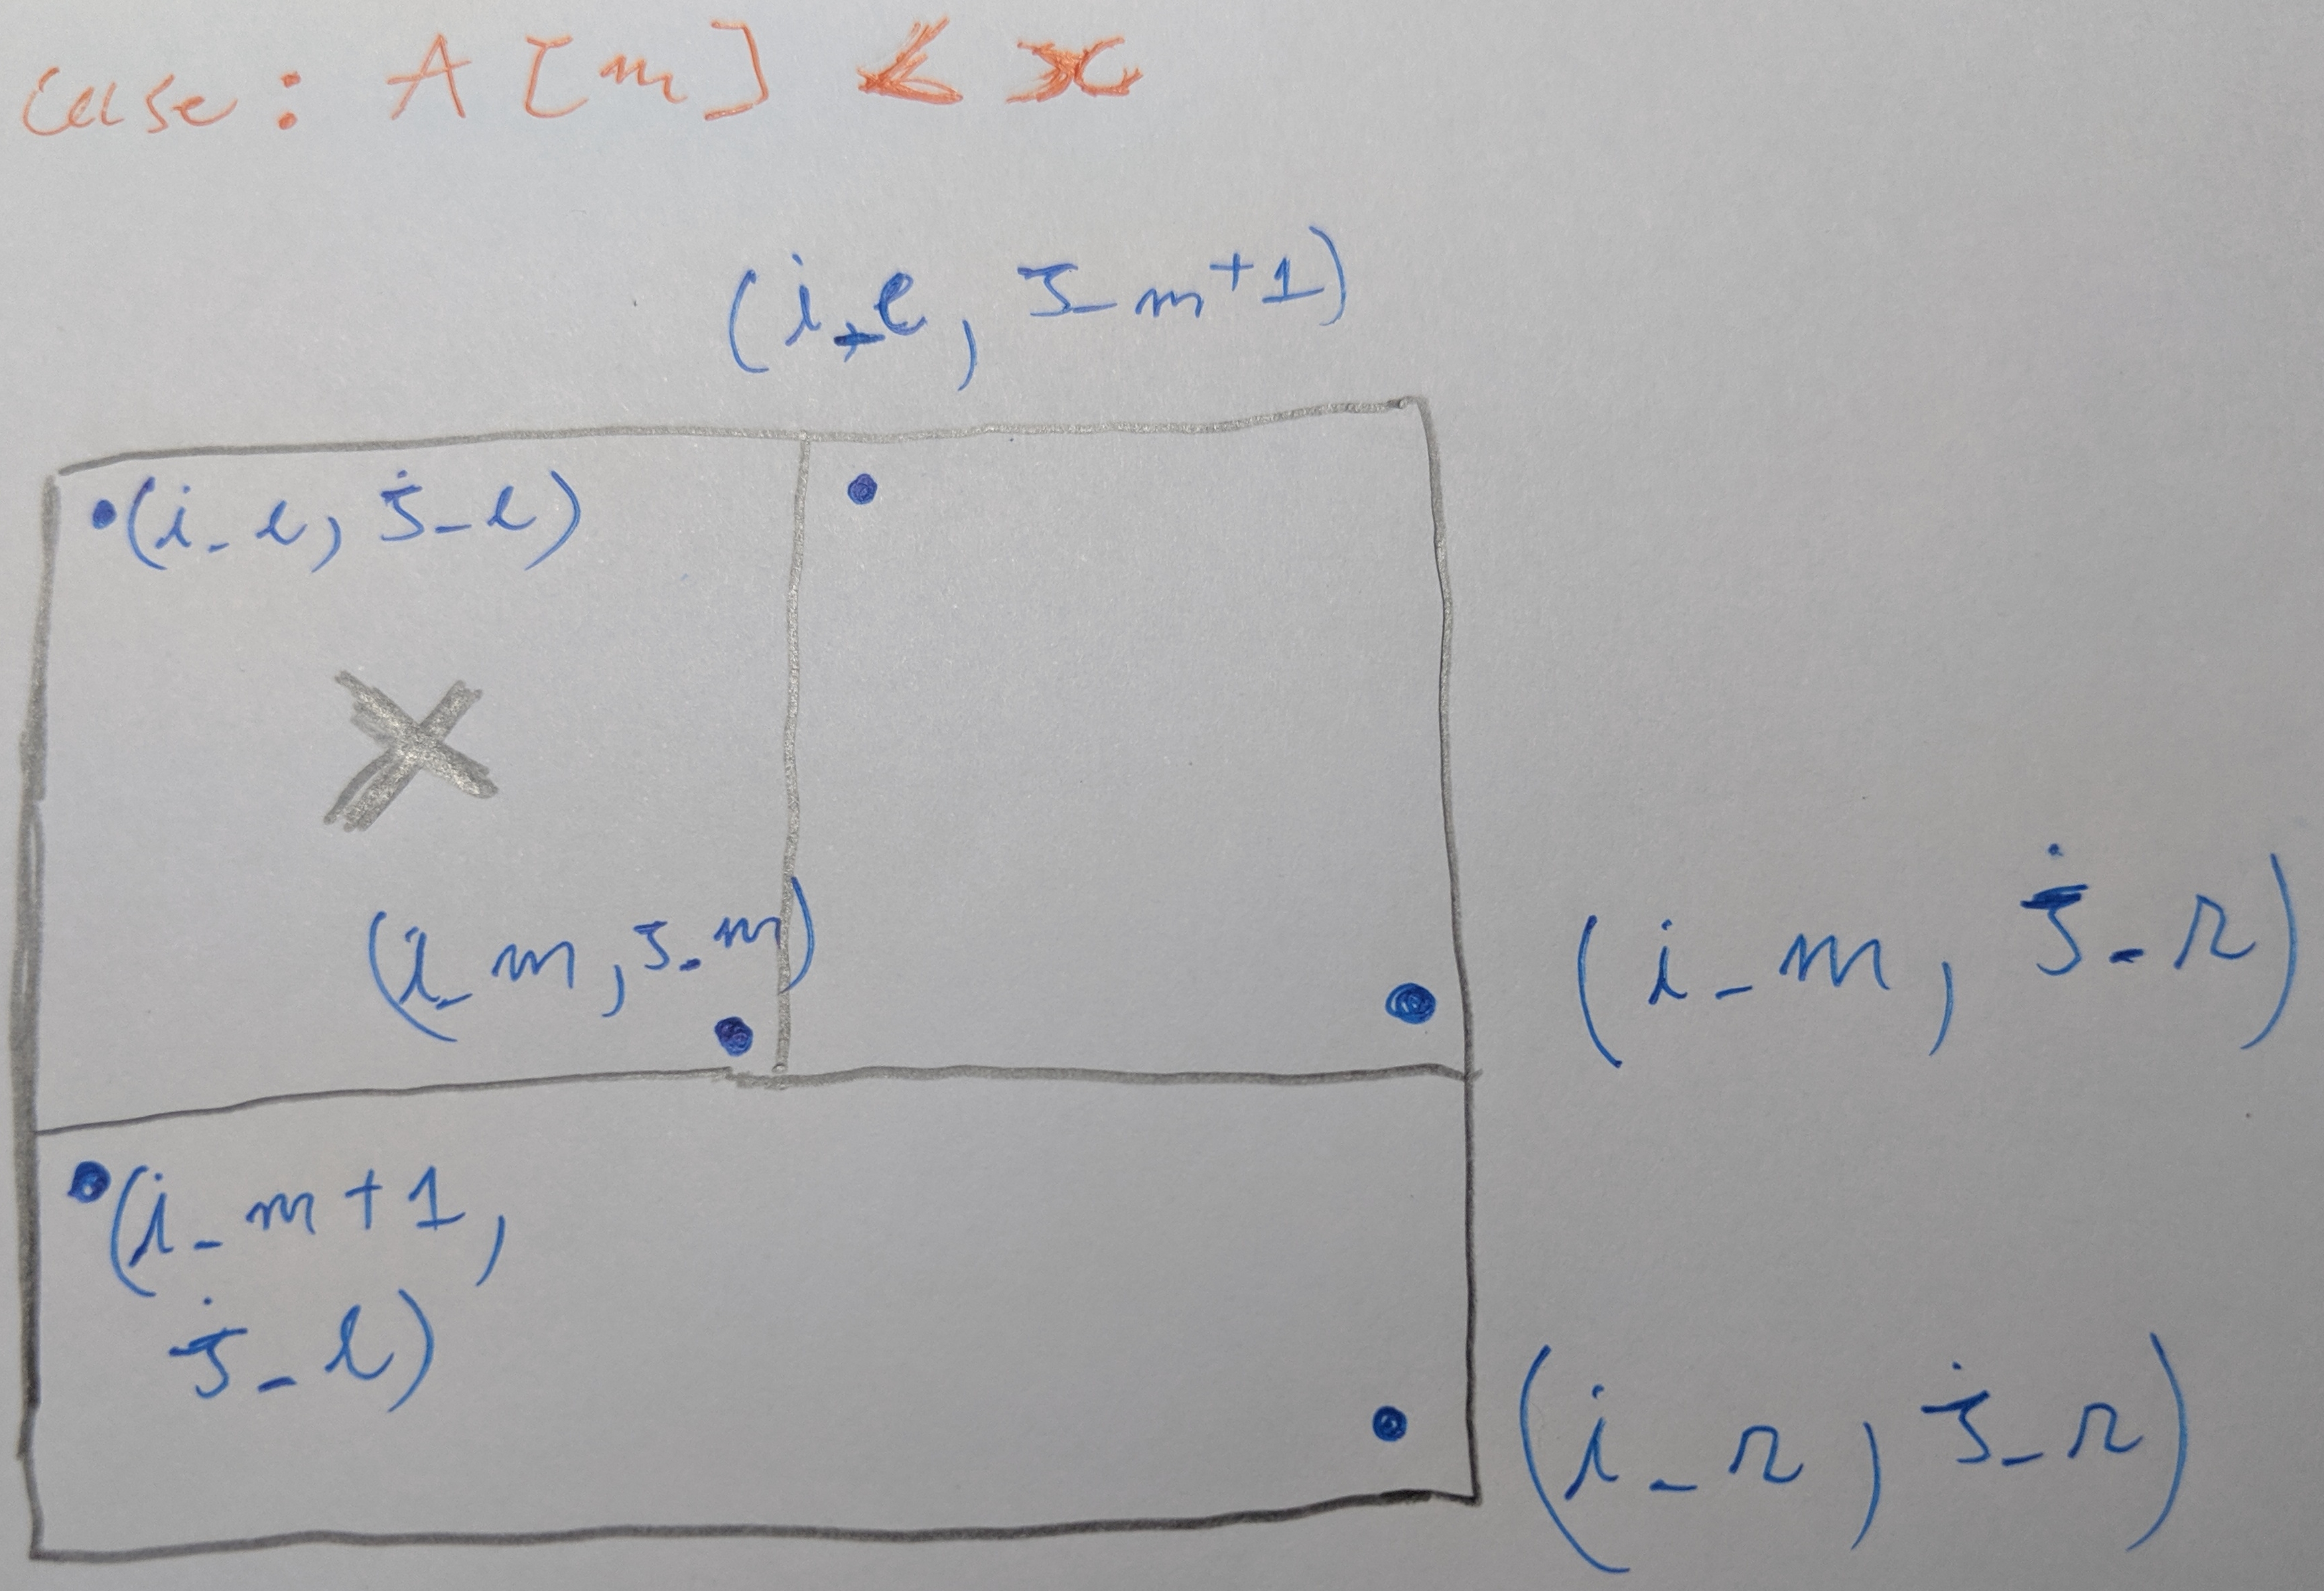 case: A[m] < x
(i_l, j_m+1)
(i_l, j_l)
(i_m, j_m)
(i_m, j_r)
(i_m+1,
j_l)
(i_r, j_r)